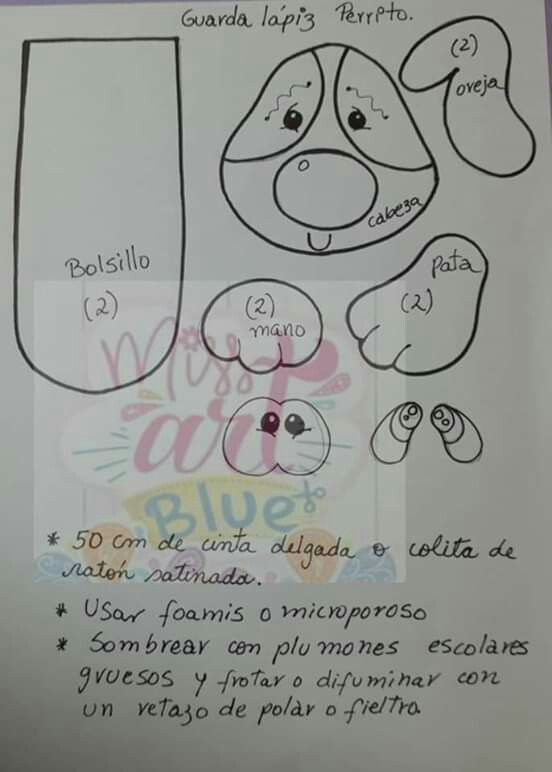 Guarda lápiz Perrito.
(2)
oveja
cabeza
Bolsillo
(2)
(2)
mano
Pata
(2)
Miss
art
Blue
* 50 cm de cinta delgada o colita de
ratón satinada.
* Usar foamis o microporoso
* Sombrear con plumones escolares
gruesos y frotar o difuminar con
un retazo de polar o fieltro